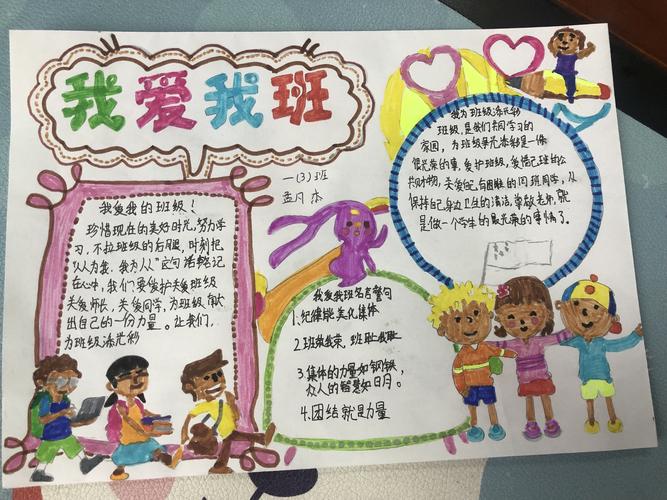 我爱我班
一(3)班
孟凡杰
我爱我的班级！
珍惜现在的美好时光，努力学
习，不拉班级的后腿，时刻把
"人人为我，我为人人"这句话牢记
在心中，我们要爱护关爱班级
关爱师长，关爱同学，为班级献
出自己的一份力量。让我们，
为班级添光彩
我为班级添光彩
班级，是我们共同学习的
家园，为班级争光添彩是一件
很光荣的事，爱护班级，爱惜班级的公
共财物，关爱有困难的同班同学，
保持自己身边卫生的清洁，尊敬老师，就
是做一个学生的最光荣的事情了。
我爱我班名言警句
1.纪律能美化集体
2.班荣我荣，班耻我耻
3.集体的力量如钢铁，
众人的智慧如日月。
4.团结就是力量